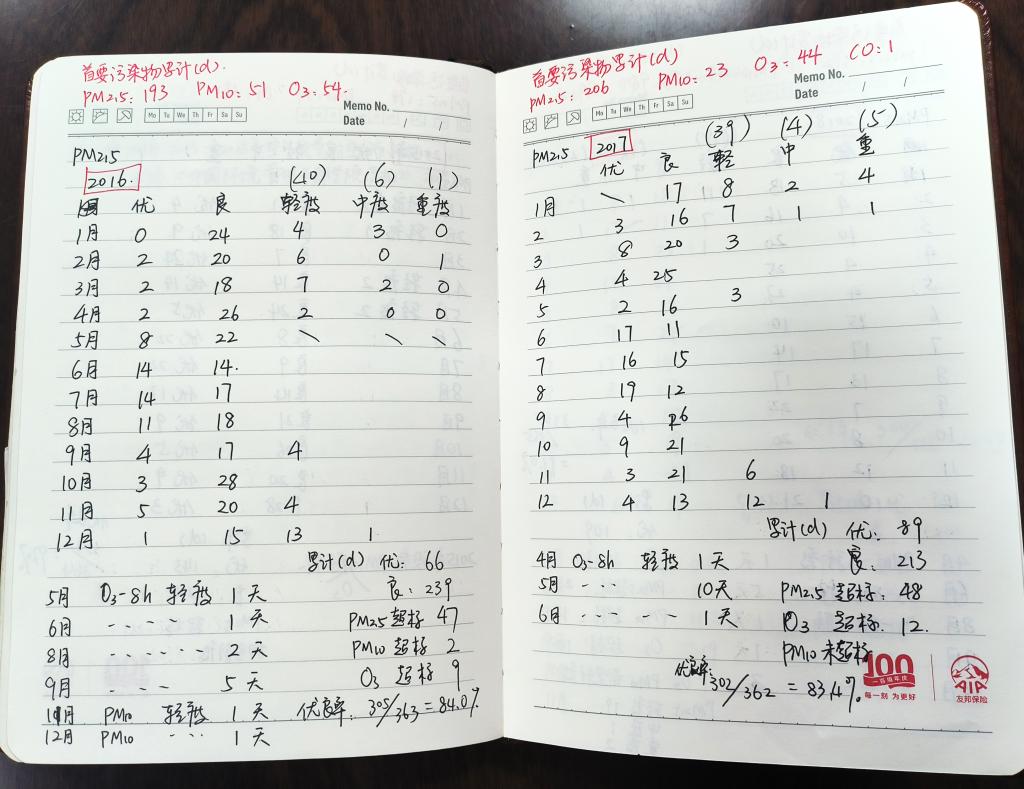 首要污染物累计(d).
PM2.5: 193 PM10: 51 O3: 54.
Memo No.
Mo Tu We Th Fr Sa Su
Date / /
PM2.5
2016. (40) (6) (1)
优 良 轻度 中度 重度
1月 0 24 4 3 0
2月 2 20 6 0 1
3月 2 18 7 2 0
4月 2 26 2 0 0
5月 8 22 \ \ \
6月 14 14.
7月 14 17
8月 11 18
9月 4 17 4
10月 3 28
11月 5 20 4
12月 1 15 13 1
累计(d) 优: 66
良: 239
5月 O3-8h 轻度 1天
6月 ----- 1天 PM2.5超标 47
8月 ------ 2天 PM10超标 2
9月 ---- 5天 O3超标 9
11月 PM10 轻度 1天 优良率: 305/363=84.0%
12月 PM10 --- 1天
首要污染物累计(d)
PM2.5: 206 PM10: 23 O3: 44 CO: 1
Memo No.
Mo Tu We Th Fr Sa Su
Date / /
PM2.5 2017 (39) (4) (5)
优 良 轻 中 重
1月 \ 17 8 2 4
2 3 16 7 1 1
3 8 20 3
4 4 25
5 2 16 3
6 17 11
7 16 15
8 19 12
9 4 26
10 9 21
11 3 21 6
12 4 13 12 1
累计(d) 优: 89
4月 O3-8h 轻度 1天 良: 213
5月 --- 10天 PM2.5超标: 48
6月 -- --- 1天 O3超标. 12.
PM10未超标
优良率: 302/362 = 83.4%.
100
一百周年庆
每一刻 为更好
AIA
友邦保险